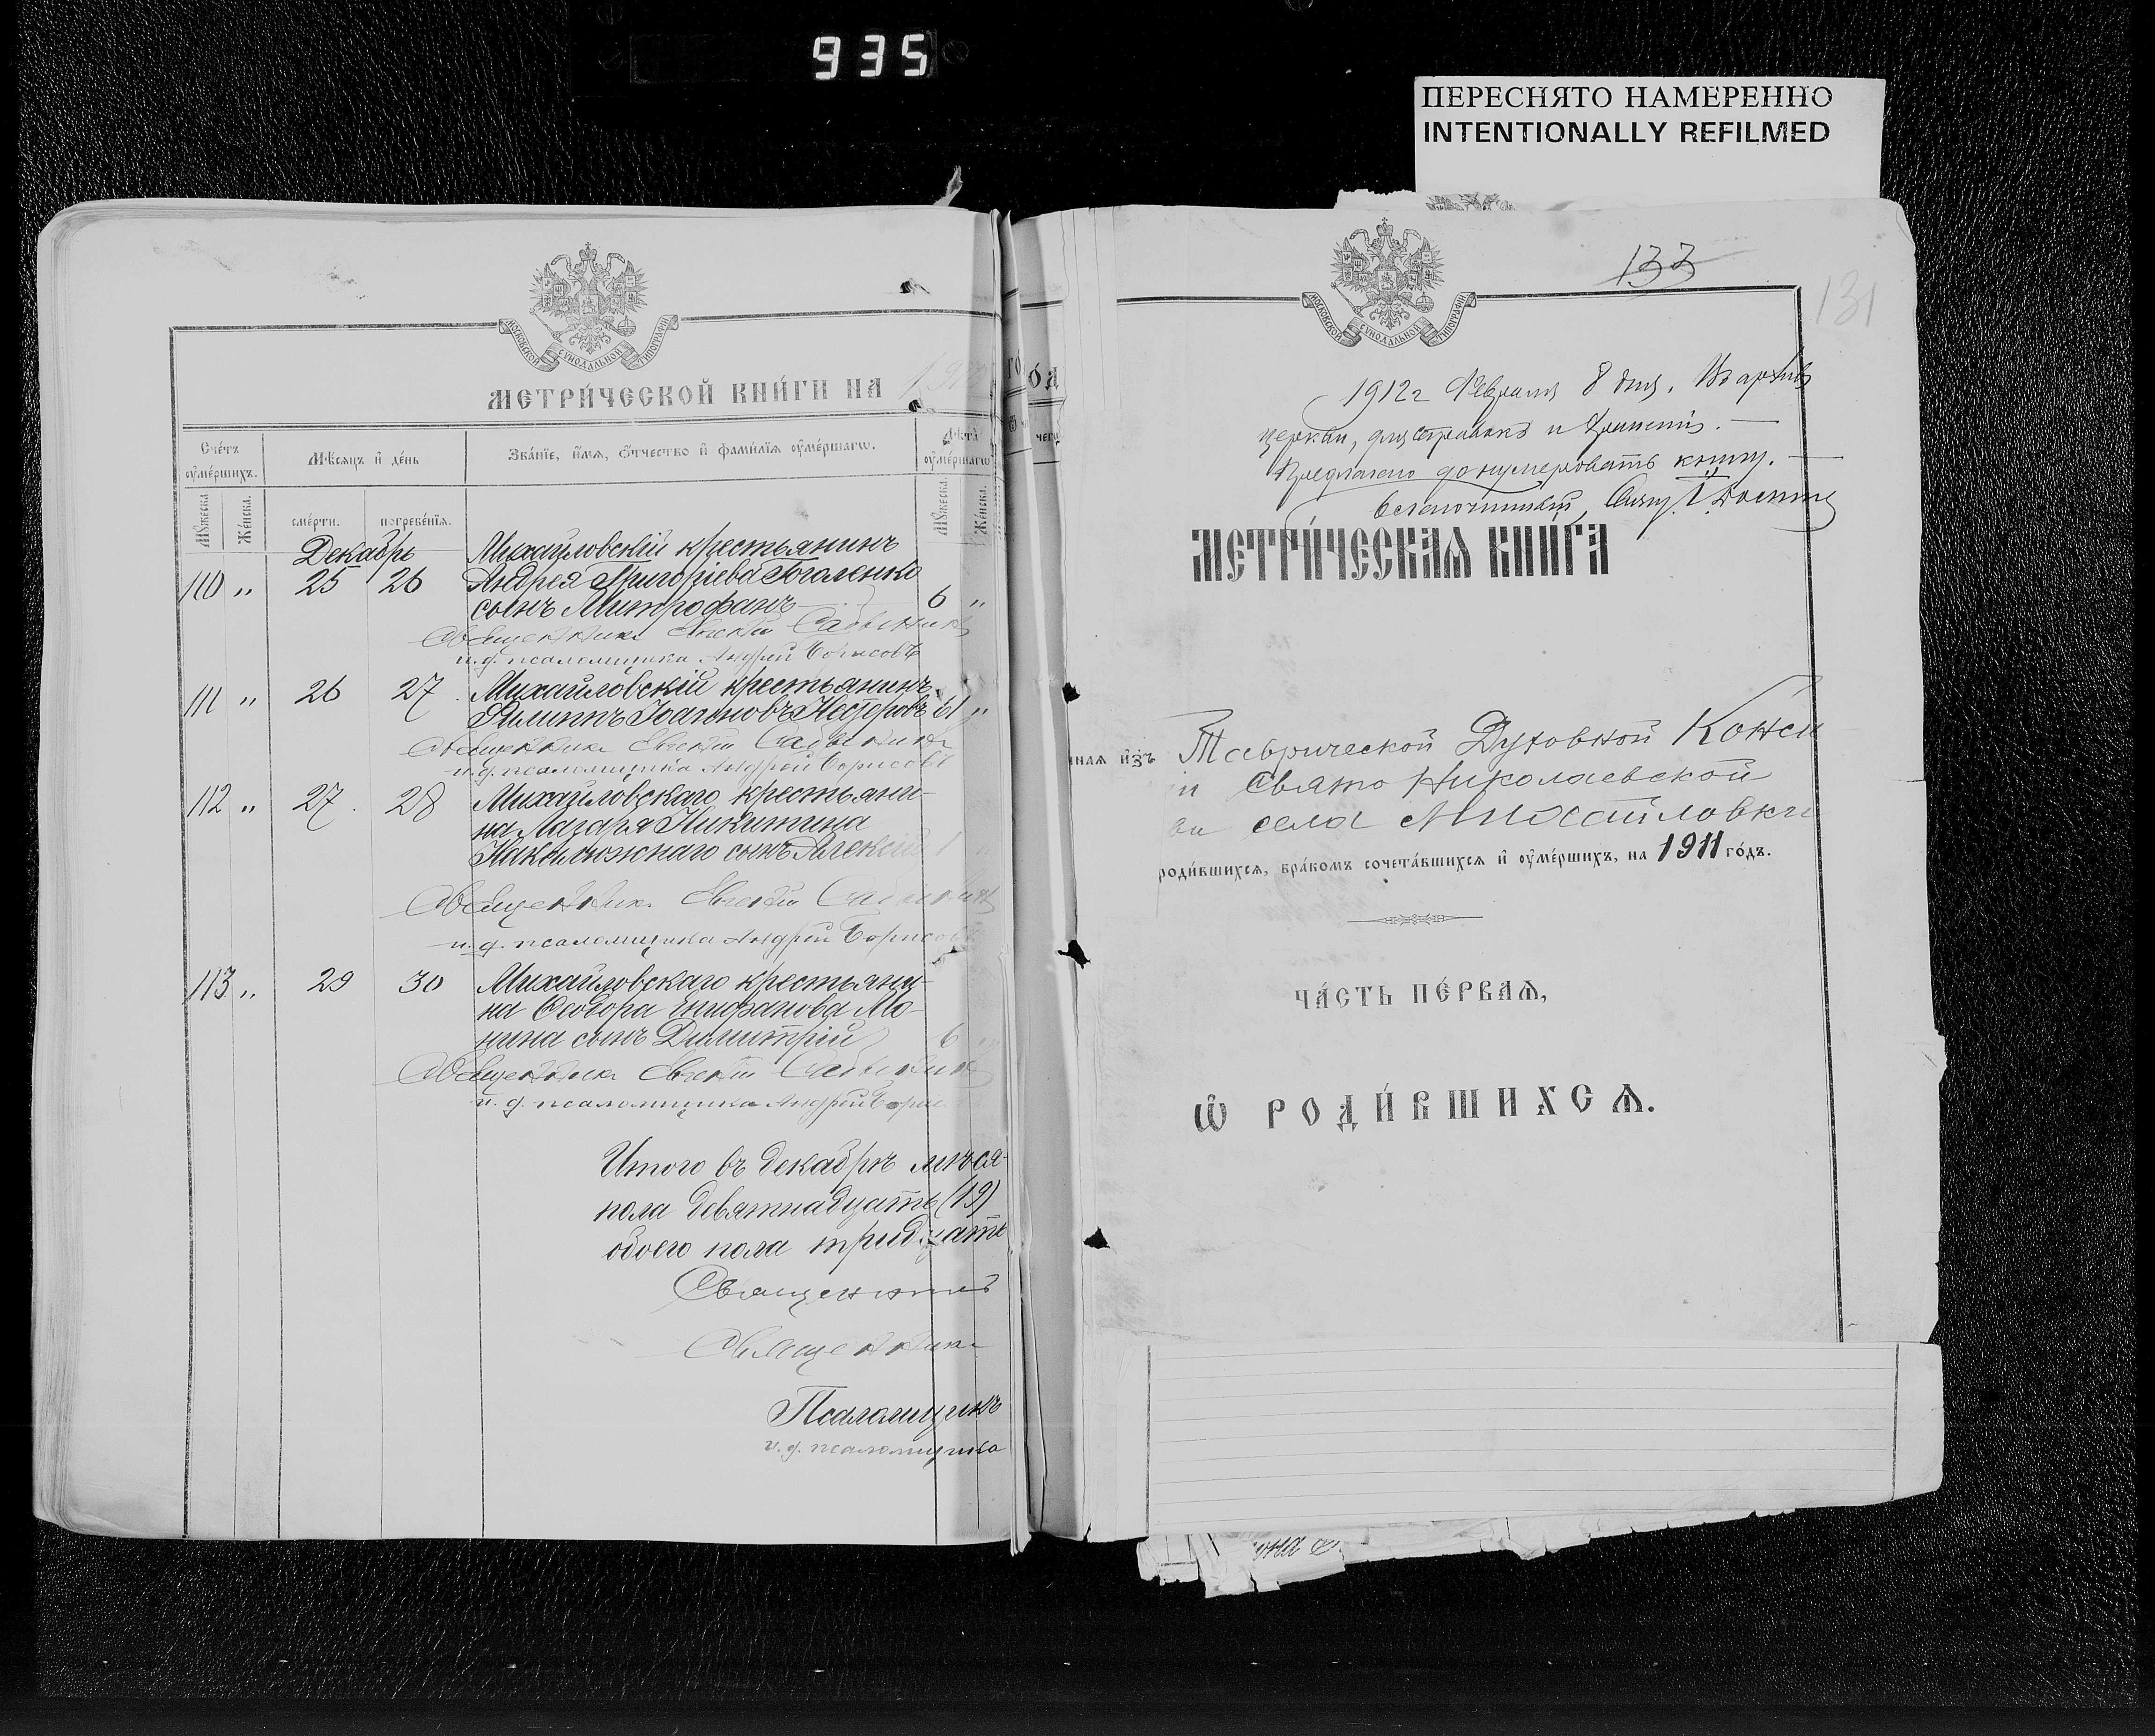 935
ПЕРЕСНЯТО НАМЕРЕННО
INTENTIONALLY REFILMED
МОСКОВСКОЙ СѴНОДАЛЬНОЙ ТИПОГРАФІИ
МЕТРИ́ЧЕСКОЙ КНИ́ГИ НА
Сче́тъ ᲂу҆ме́ршихъ.
Мѣ́сяцъ и҆ де́нь
Зва́нїе, и҆́мѧ, ѻ҆́тчество и҆ фами́лїѧ ᲂу҆ме́ршагѡ.
Лѣ́та ᲂу҆ме́ршагѡ
Мꙋ́жеска.
Же́нска.
сме́рти.
погребе́нїѧ.
Мꙋ́жеска.
Же́нска.
Декабрь
Михайловскій крестьянинъ
110 „ 25 26 Андрея Григоріева
сынъ Митрофанъ 6 „
Священникъ Евгеній
и. д. псаломщика Андрей Борисовъ
111 „ 26 27 Михайловскій крестьянинъ
Филиппъ Іоанновъ Нестеровъ 61 „
Священникъ Евгеній
и. д. псаломщика Андрей Борисовъ
112 „ 27 28 Михайловскаго крестьяни-
на Лазаря Никитина
сынъ Алексій 1
Священникъ Евгеній
и. д. псаломщика Андрей Борисовъ
113 „ 29 30 Михайловскаго крестьяни-
на Ѳеодора Епифанова Мо-
нина сынъ Димитрій 6
Священникъ Евгеній
и. д. псаломщика Андрей Борис
Итого въ декабрѣ мѣся-
пола девятнадцать (19)
обоего пола тридцать
Священникъ
Священникъ
Псаломщикъ
и. д. псаломщика
133
131
МОСКОВСКОЙ СѴНОДАЛЬНОЙ ТИПОГРАФІИ
1912 г Февраля 8 дня. Въ архивъ
церкви, для справокъ и храненія. —
Предложено донумеровать книгу. —
МЕТРИ́ЧЕСКАѦ КНИ́ГА
наѧ и҆зъ Таврической Духовной Конси
и Свято Николаевской
ви села Михайловки
роди́вшихсѧ, бра́комъ сочета́вшихсѧ и҆ ᲂу҆ме́ршихъ, на 1911 го́дъ.
ЧА́СТЬ ПЕ́РВАѦ,
Ѽ РОДИ́ВШИХСѦ.